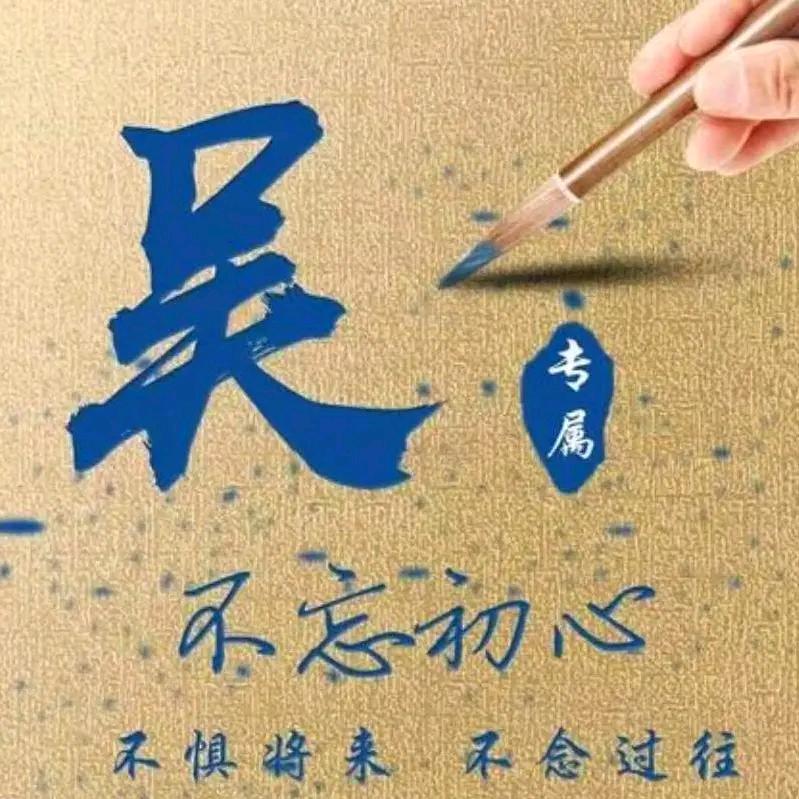 吴
专属
不忘初心
不惧将来 不念过往